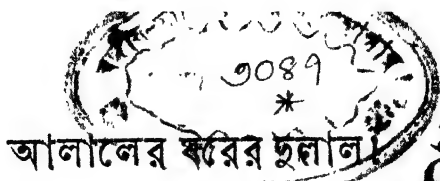 ৩০৪৭
*
আলালের ঘরের দুলাল।